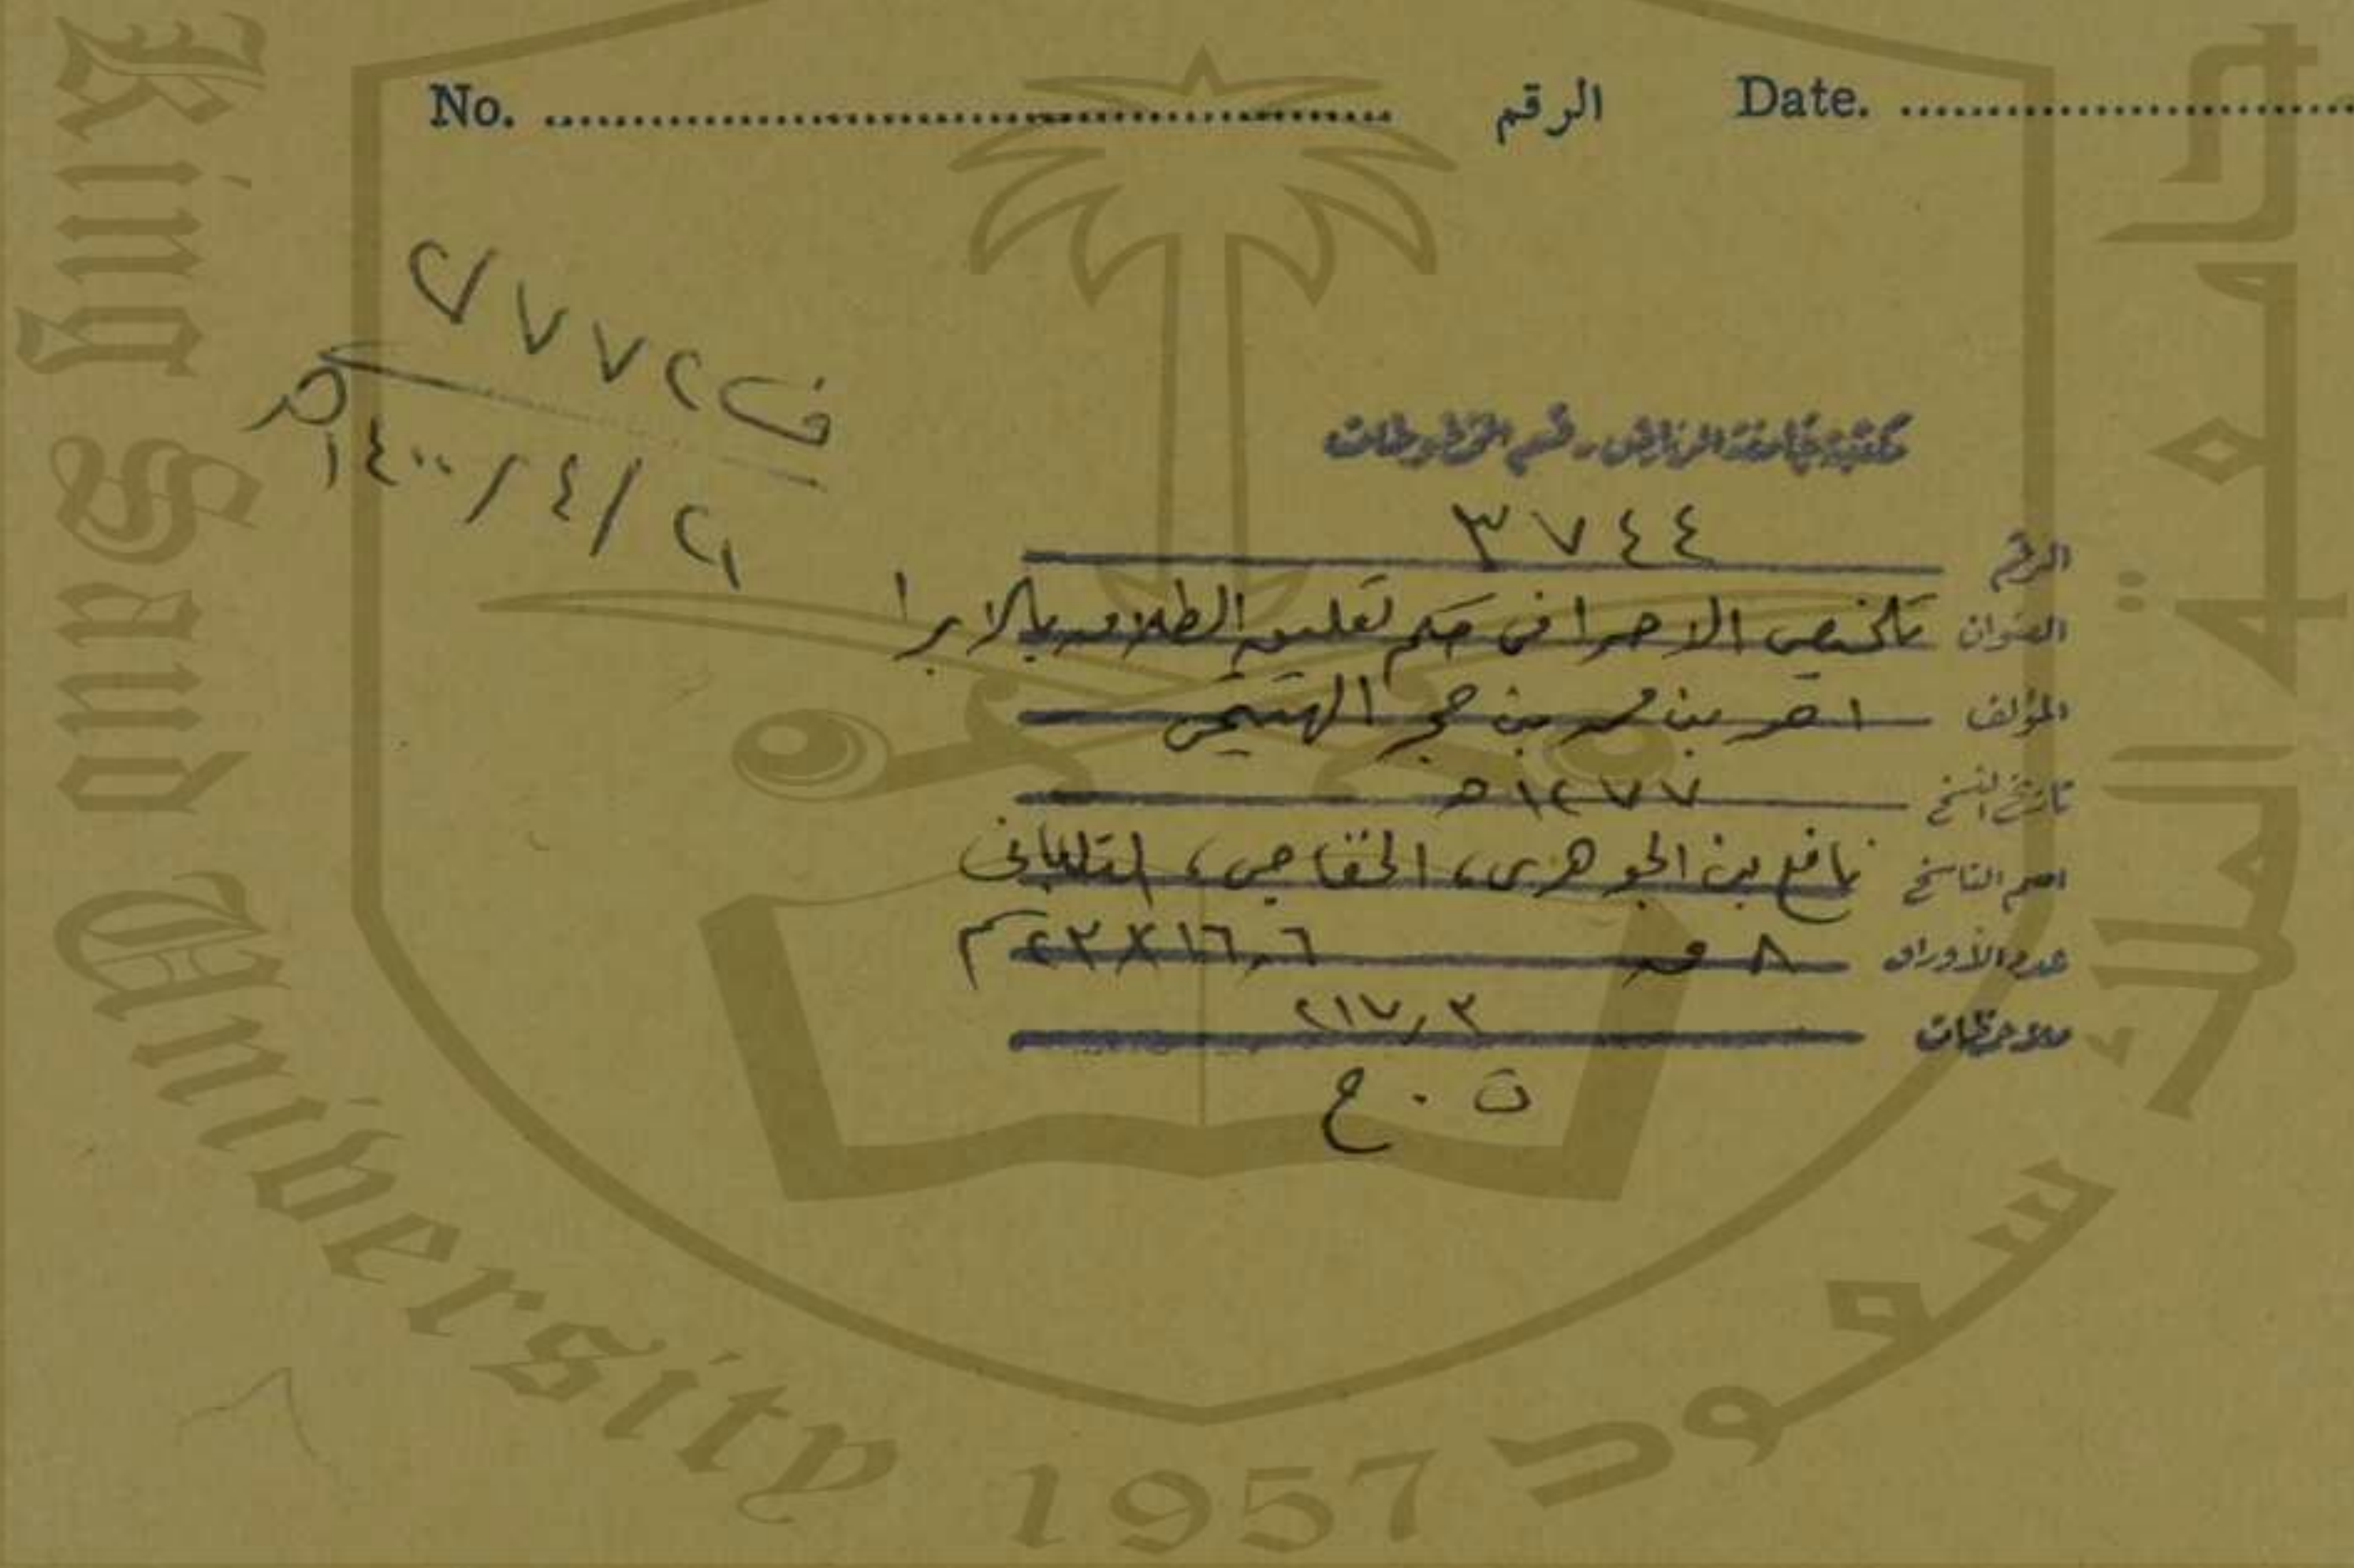 No. الرقم Date.
ف ٢٧٧٧
٢١/٤/١٤٠٠هـ
مكتبة جامعة الرياض - قسم المخطوطات
الرقم ٣٧٤٤
العنوان تلخيص الاحرا في حكم تعليق الطلاق بالابرا
المؤلف احمد بن محمد بن حجر الهيتمي
تاريخ النسخ ١٢٧٧هـ
اسم الناسخ نافع بن الجوهري، الخفاجي، التلباني
عدد الأوراق ٨ ق ١٦,٦×٢٣سم
ملاحظات ٢١٧,٣
ت . ح
King Saud University 1957
جامعة الملك سعود